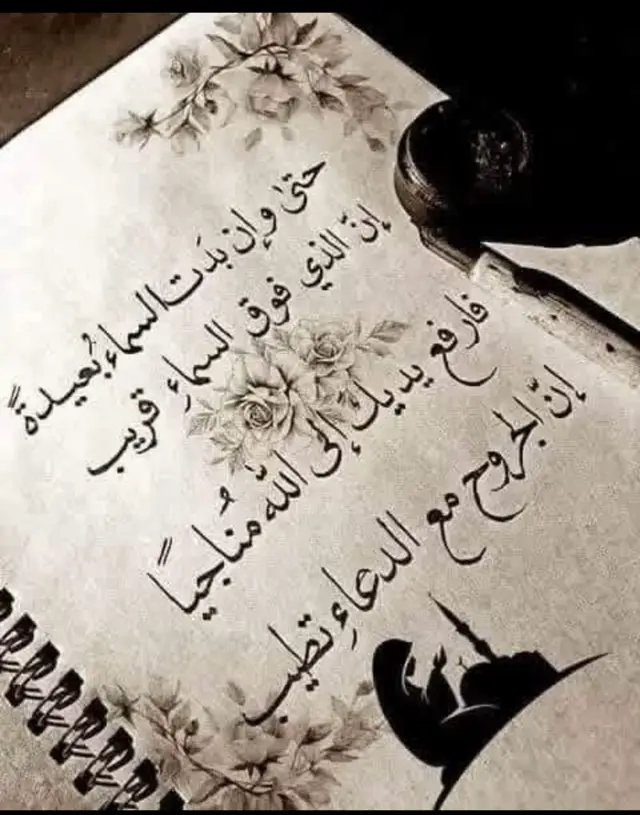 حتىٰ وإن بدَت السماء بُعيدةً
إنّ الذي فوق السماءِ قريب
فارفع يديك إلى الله مُناجياً
إنّ الجروح مع الدعاءِ تطيب